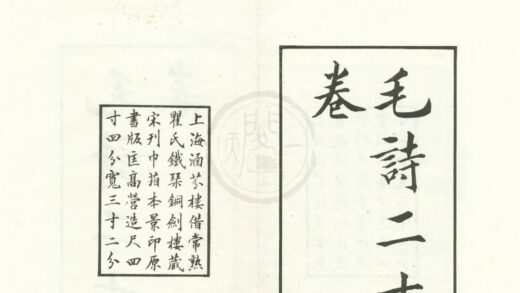 毛詩二十
卷
上海涵芬樓借常熟
瞿氏鐵琴銅劍樓藏
宋刊巾箱本景印原
書版匡高營造尺四
寸四分寬三寸二分